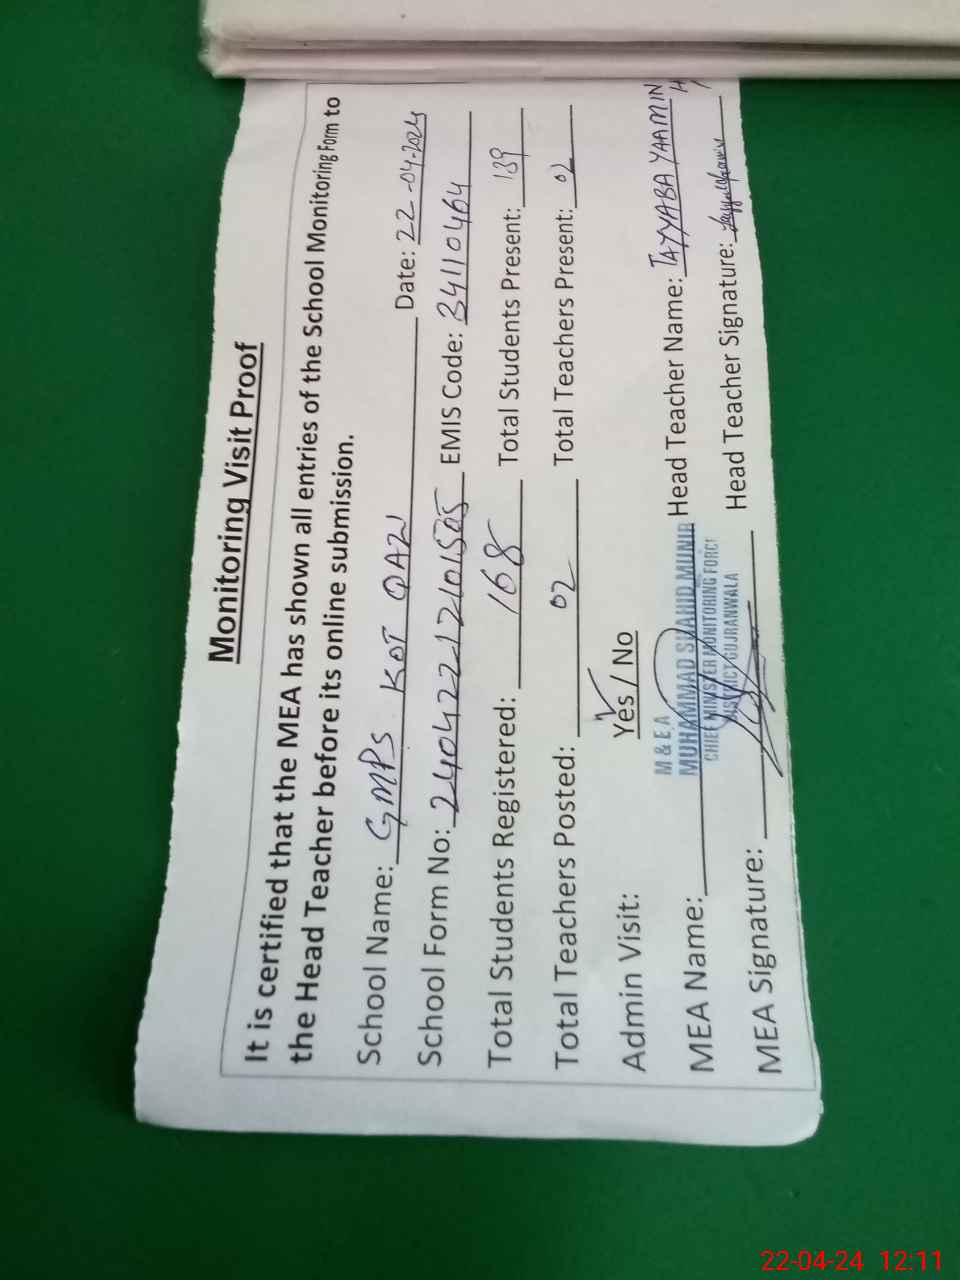 Monitoring Visit Proof
It is certified that the MEA has shown all entries of the School Monitoring Form to
the Head Teacher before its online submission.
School Name: GMPS KOT QAZI Date: 22-04-2024
School Form No: 240422-12101505 EMIS Code: 34110464
Total Students Registered: 168 Total Students Present: 139
Total Teachers Posted: 02 Total Teachers Present: 02
Admin Visit: Yes / No
M & E A
MEA Name: MUHAMMAD SHAHID MUNIR Head Teacher Name: TAYYABA YAAMIN
CHIEF MINISTER MONITORING FORCE
DISTRICT GUJRANWALA
MEA Signature: Head Teacher Signature:
22-04-24 12:11